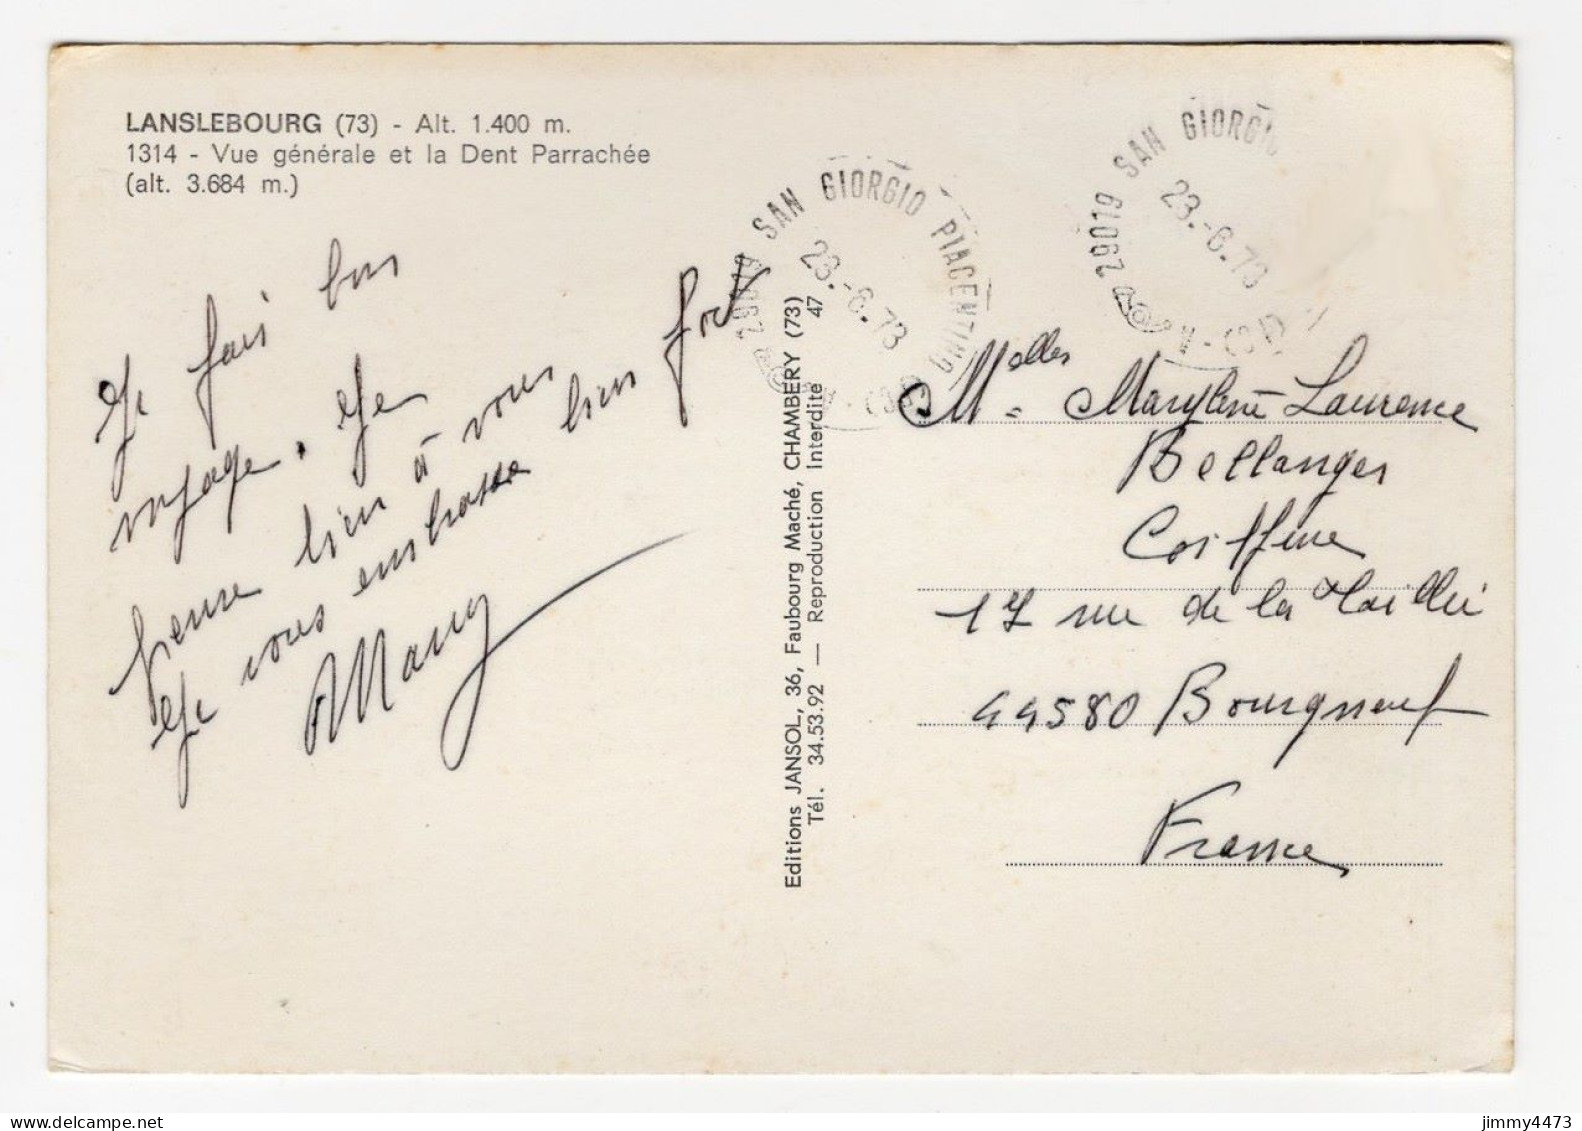 LANSLEBOURG (73) - Alt. 1.400 m.
1314 - Vue générale et la Dent Parrachée
(alt. 3.684 m.)
Je fais bon
voyage. Je
pense bien à vous
Je vous embrasse bien fort
Many
Editions JANSOL, 36, Faubourg Maché, CHAMBERY (73)
Tél. 34.53.92 — Reproduction Interdite 47
29019 SAN GIORGIO PIACENTINO
23.-6.73
29019 SAN GIORGIO
23.-6.73
Melles
Marylène Laurence
Bellanger
Coiffeuse
17 rue de la Taillée
44580 Bourgneuf
France
jimmy4473